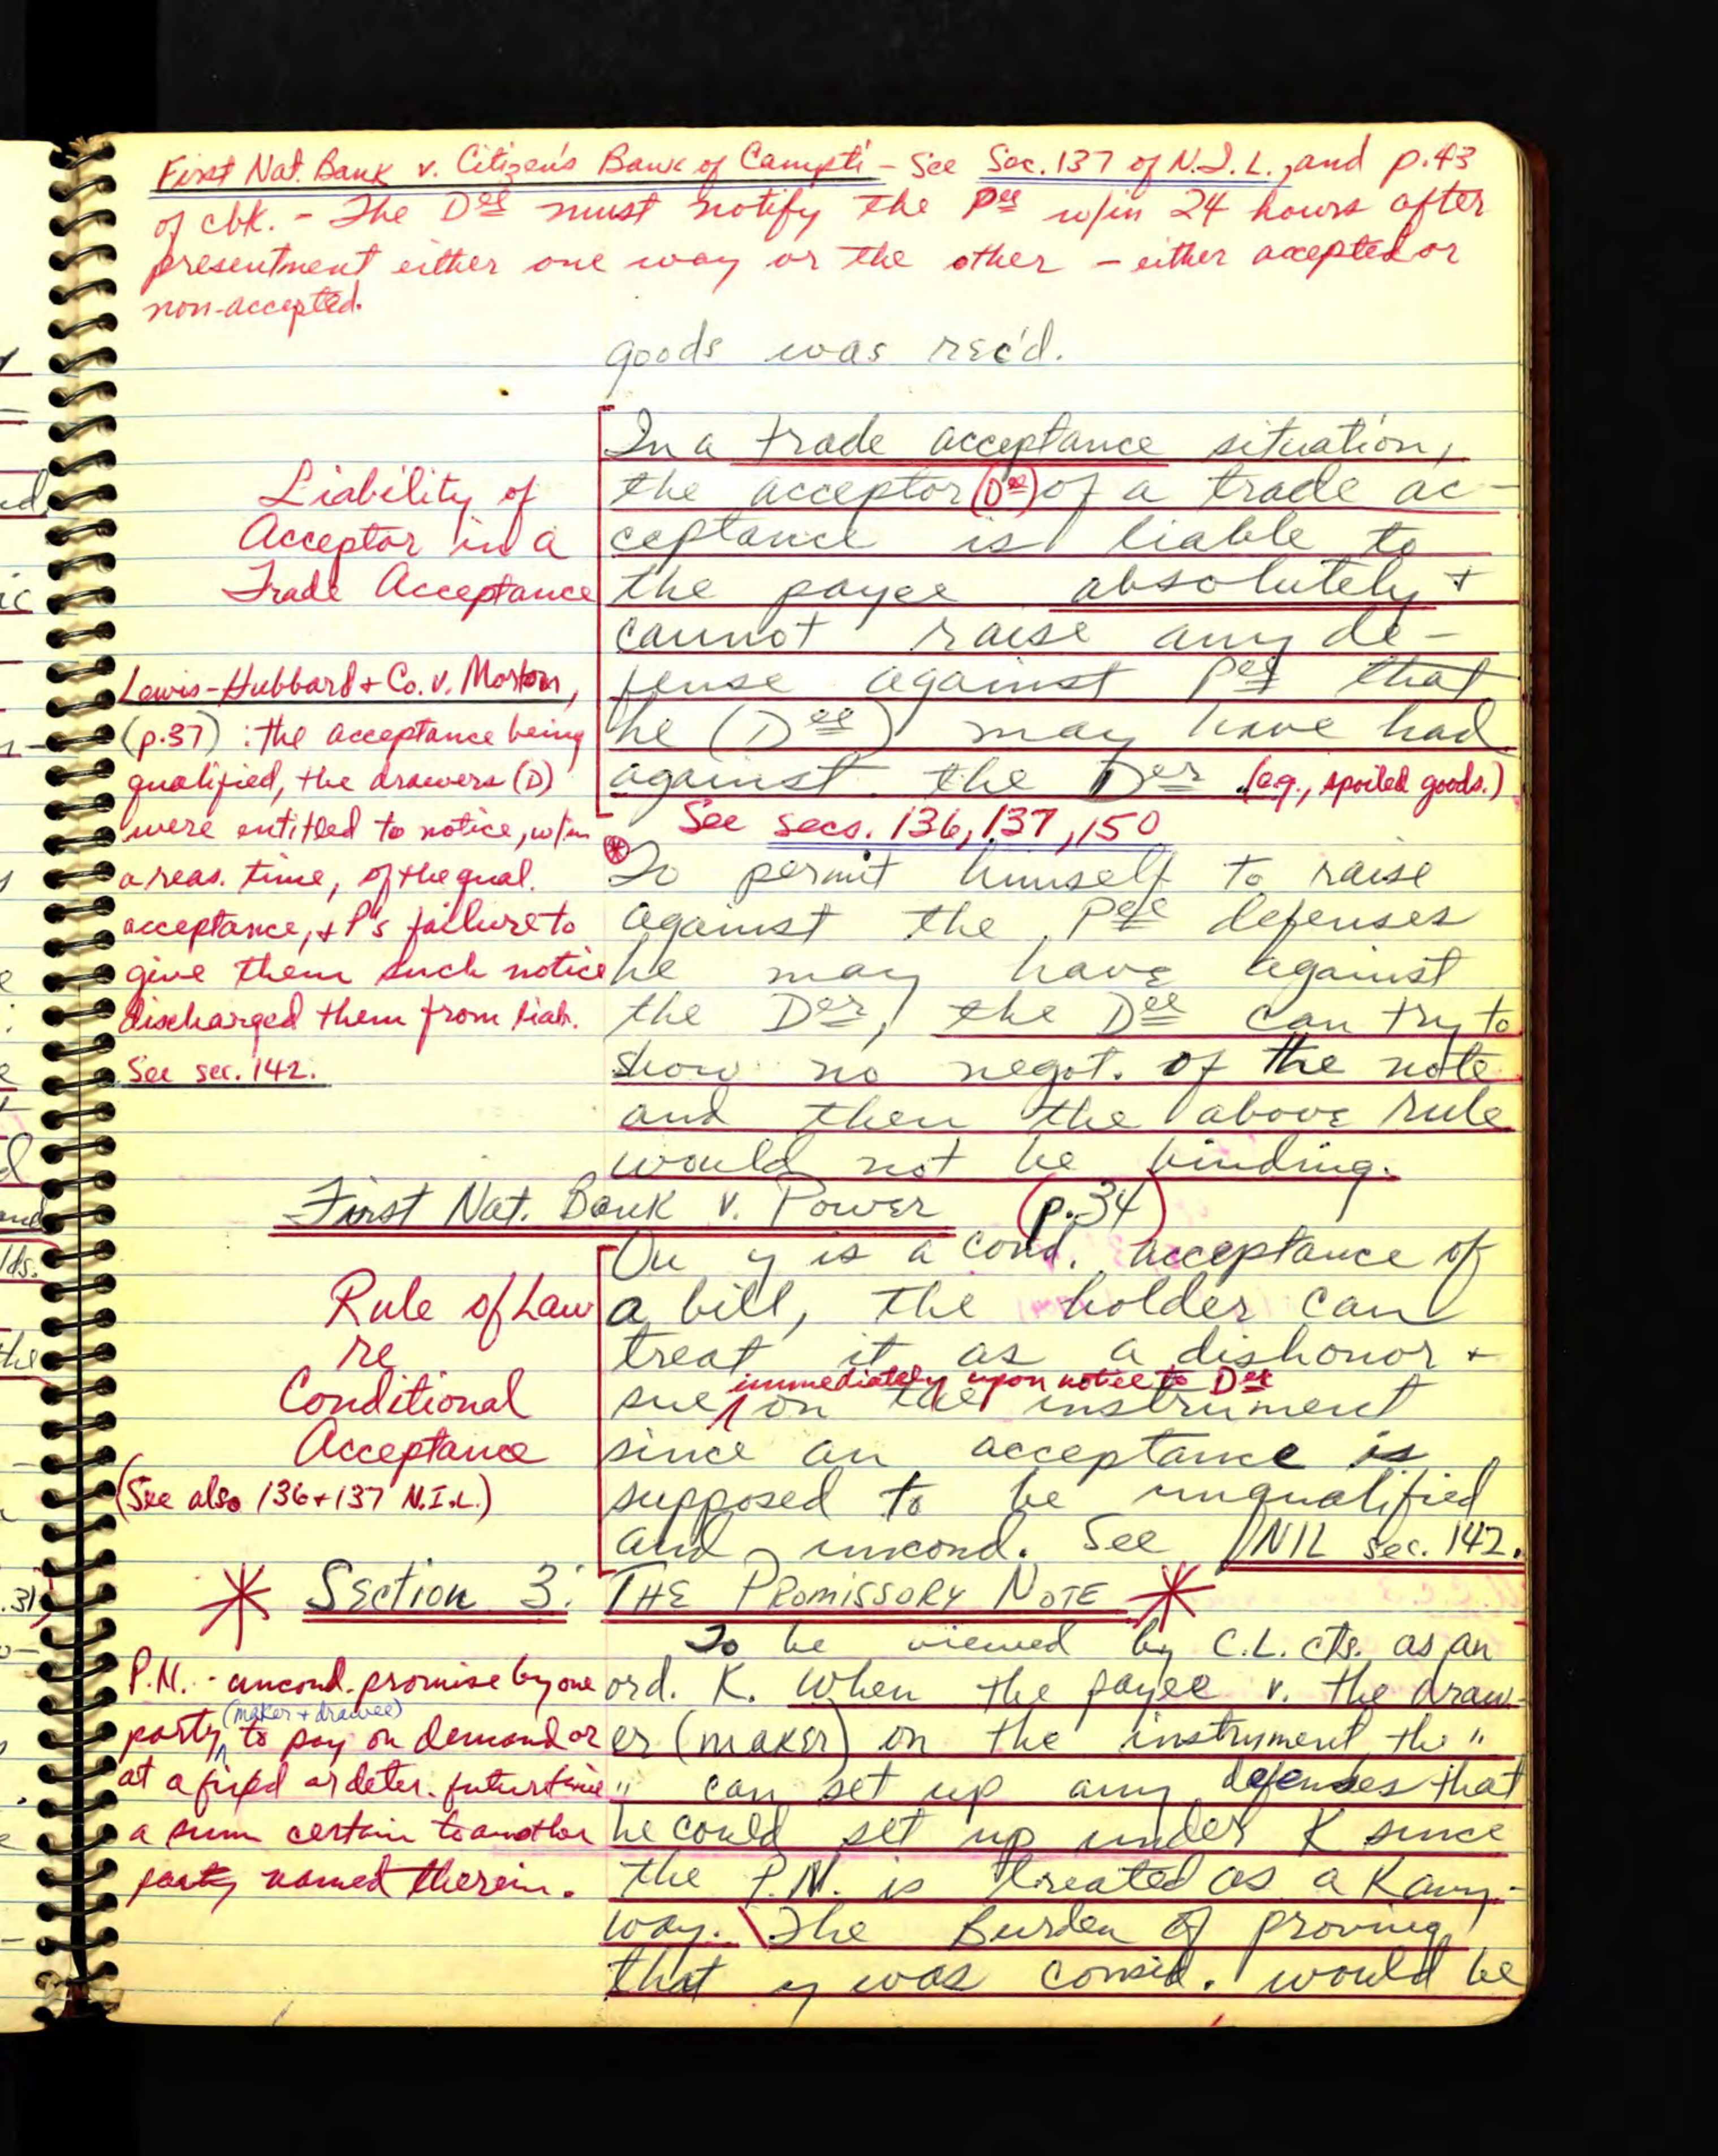 First Nat. Bank v. Citizen's Bank of Campti - See Sec. 137 of N.I.L., and p. 43
of cbk. - The Dee must notify the Pee w/in 24 hours after
presentment either one way or the other - either accepted or
non-accepted.
goods was rec'd.
In a trade acceptance situation,
the acceptor (Dee) of a trade ac-
ceptance is liable to
the payee absolutely +
cannot raise any de-
fense against Pee that
he (Dee) may have had
against the Der (e.g., spoiled goods.)
Liability of
Acceptor in a
Trade Acceptance
Lewis-Hubbard + Co. v. Morton,
(p.37) : the acceptance being
qualified, the drawers (D)
were entitled to notice, w/in
a reas. time, of the qual.
acceptance, + P's failure to
give them such notice
discharged them from liab.
See sec. 142.
See secs. 136, 137, 150
To permit himself to raise
against the Pee defenses
he may have against
the Der, the Dee can try to
show no negot. of the note
and then the above rule
would not be binding.
First Nat. Bank v. Power (p.34)
Rule of Law
re
Conditional
Acceptance
(See also 136+137 N.I.L.)
On y is a cond. acceptance of
a bill, the holder can
treat it as a dishonor +
immediately upon notice to Der
sue on the instrument
since an acceptance is
supposed to be unqualified
and uncond. See NIL sec. 142.
* Section 3: THE PROMISSORY NOTE *
P.N. - uncond. promise by one
(maker + drawee)
party to pay on demand or
at a fixed or deter. future time
a sum certain to another
party named therein.
To be viewed by C.L. cts. as an
ord. K. When the payee v. the draw-
er (maker) on the instrument, the "
" can set up any defenses that
he could set up under K since
the P.N. is treated as a K any-
way. \ The Burden of proving
that y was consid. would be